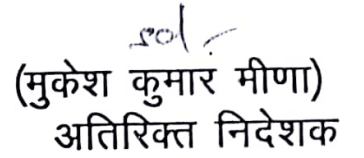 sd/-
(मुकेश कुमार मीणा)
अतिरिक्त निदेशक